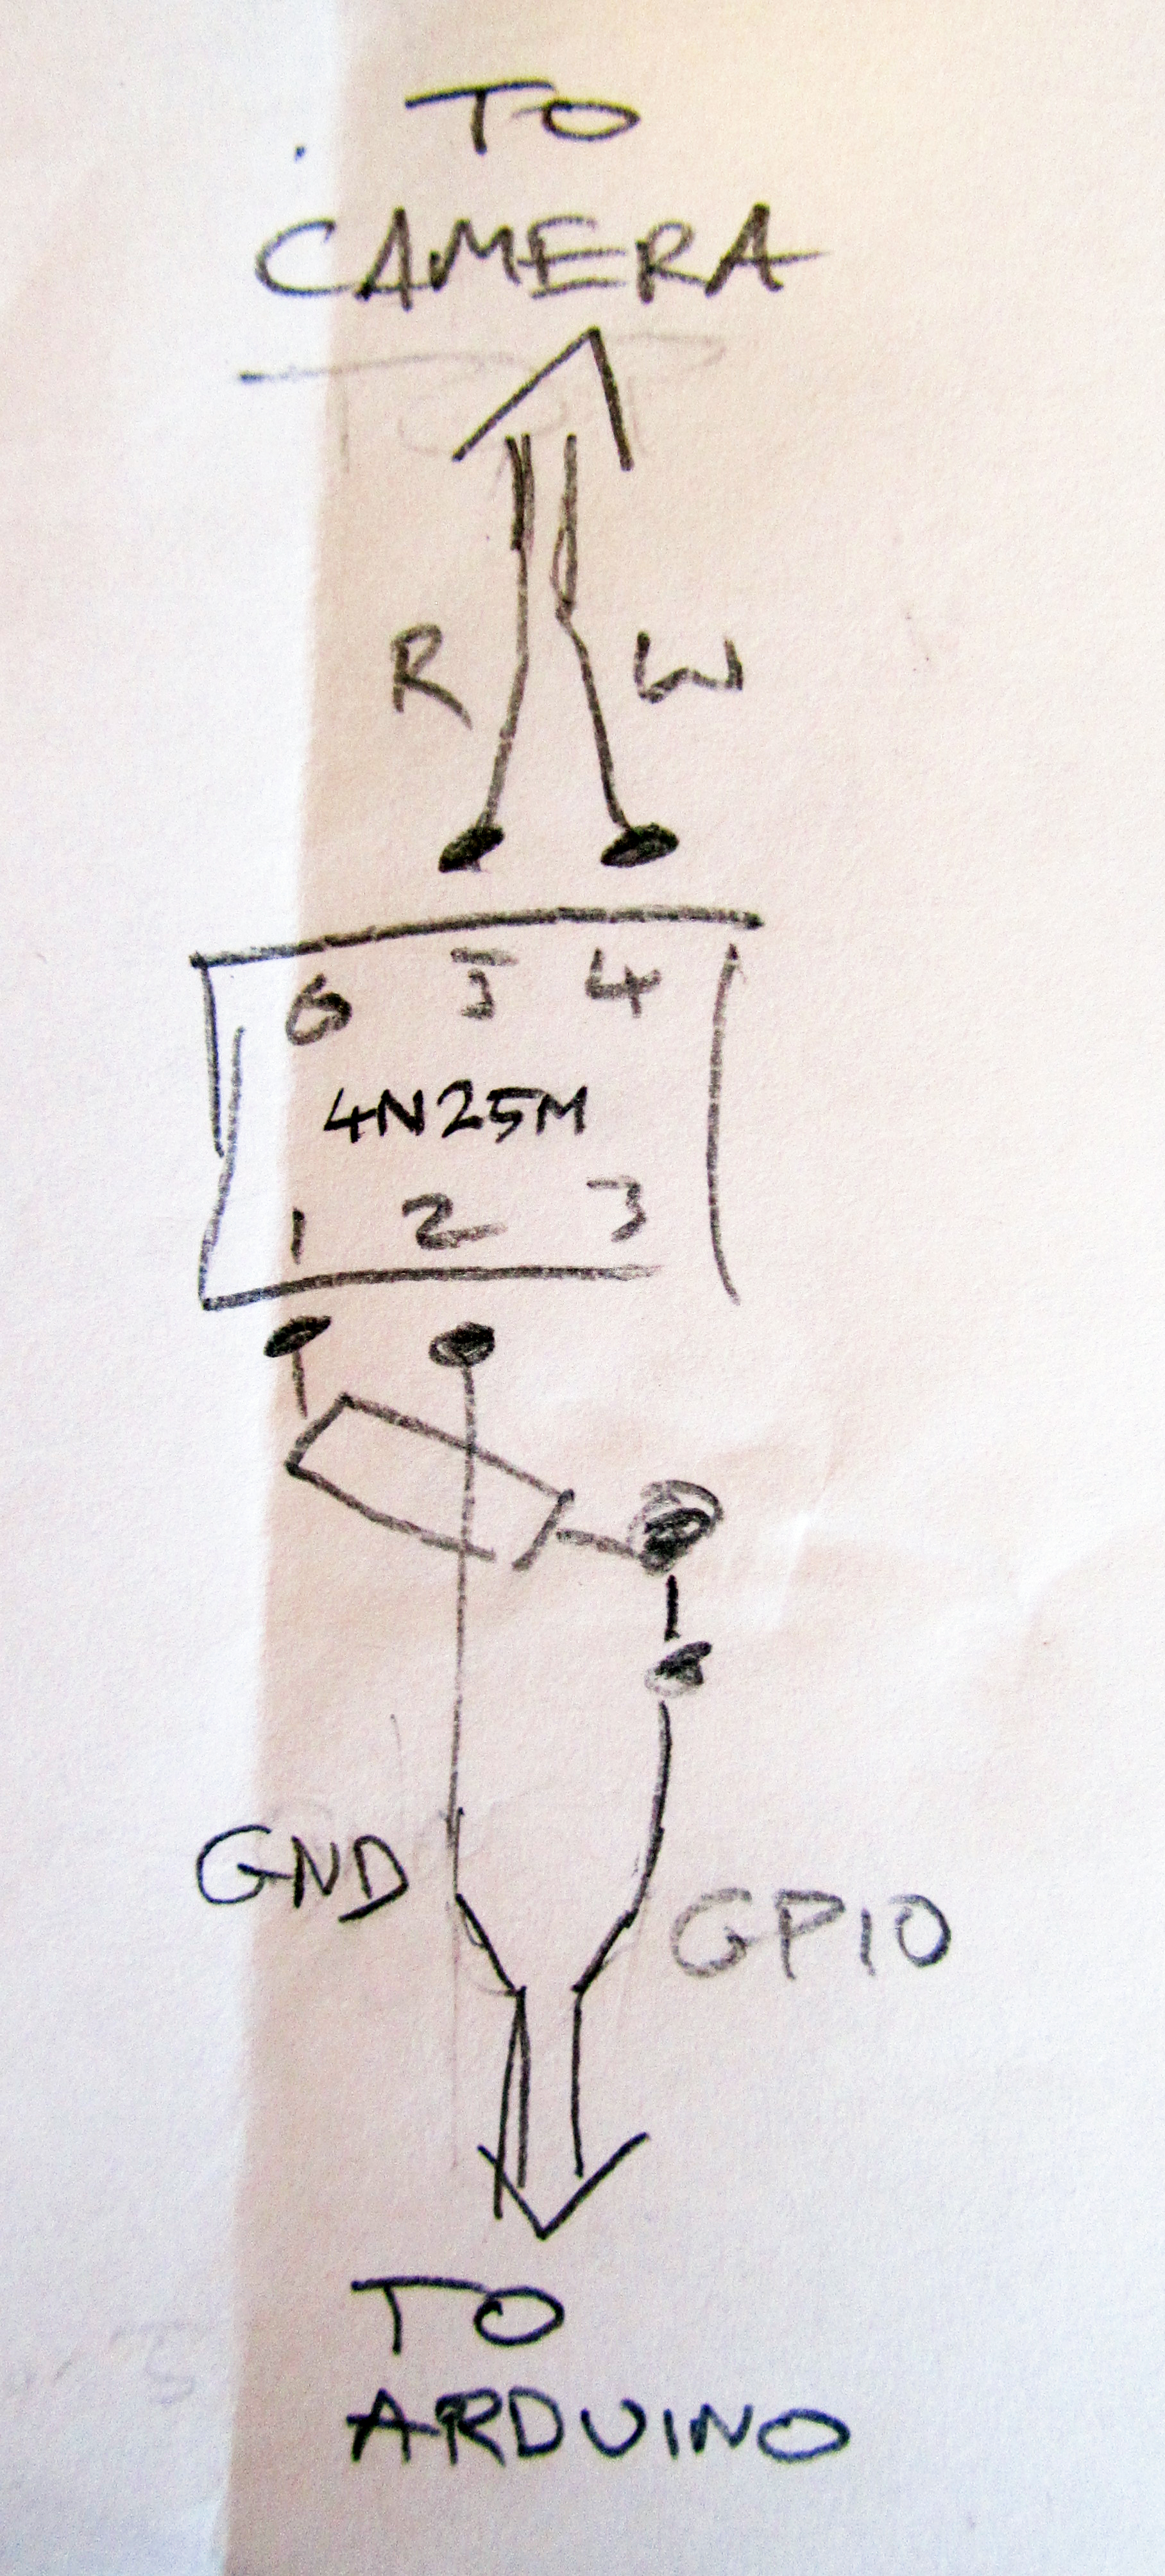 TO
CAMERA
R W
6 5 4
4N25M
1 2 3
GND
GPIO
TO
ARDUINO